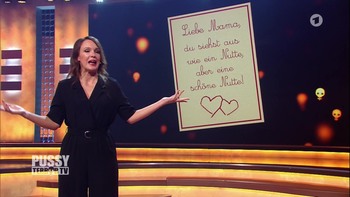 Liebe Mama,
du siehst aus
wie ein Nutte,
aber eine
schöne Nutte!
PUSSY
TERROR TV